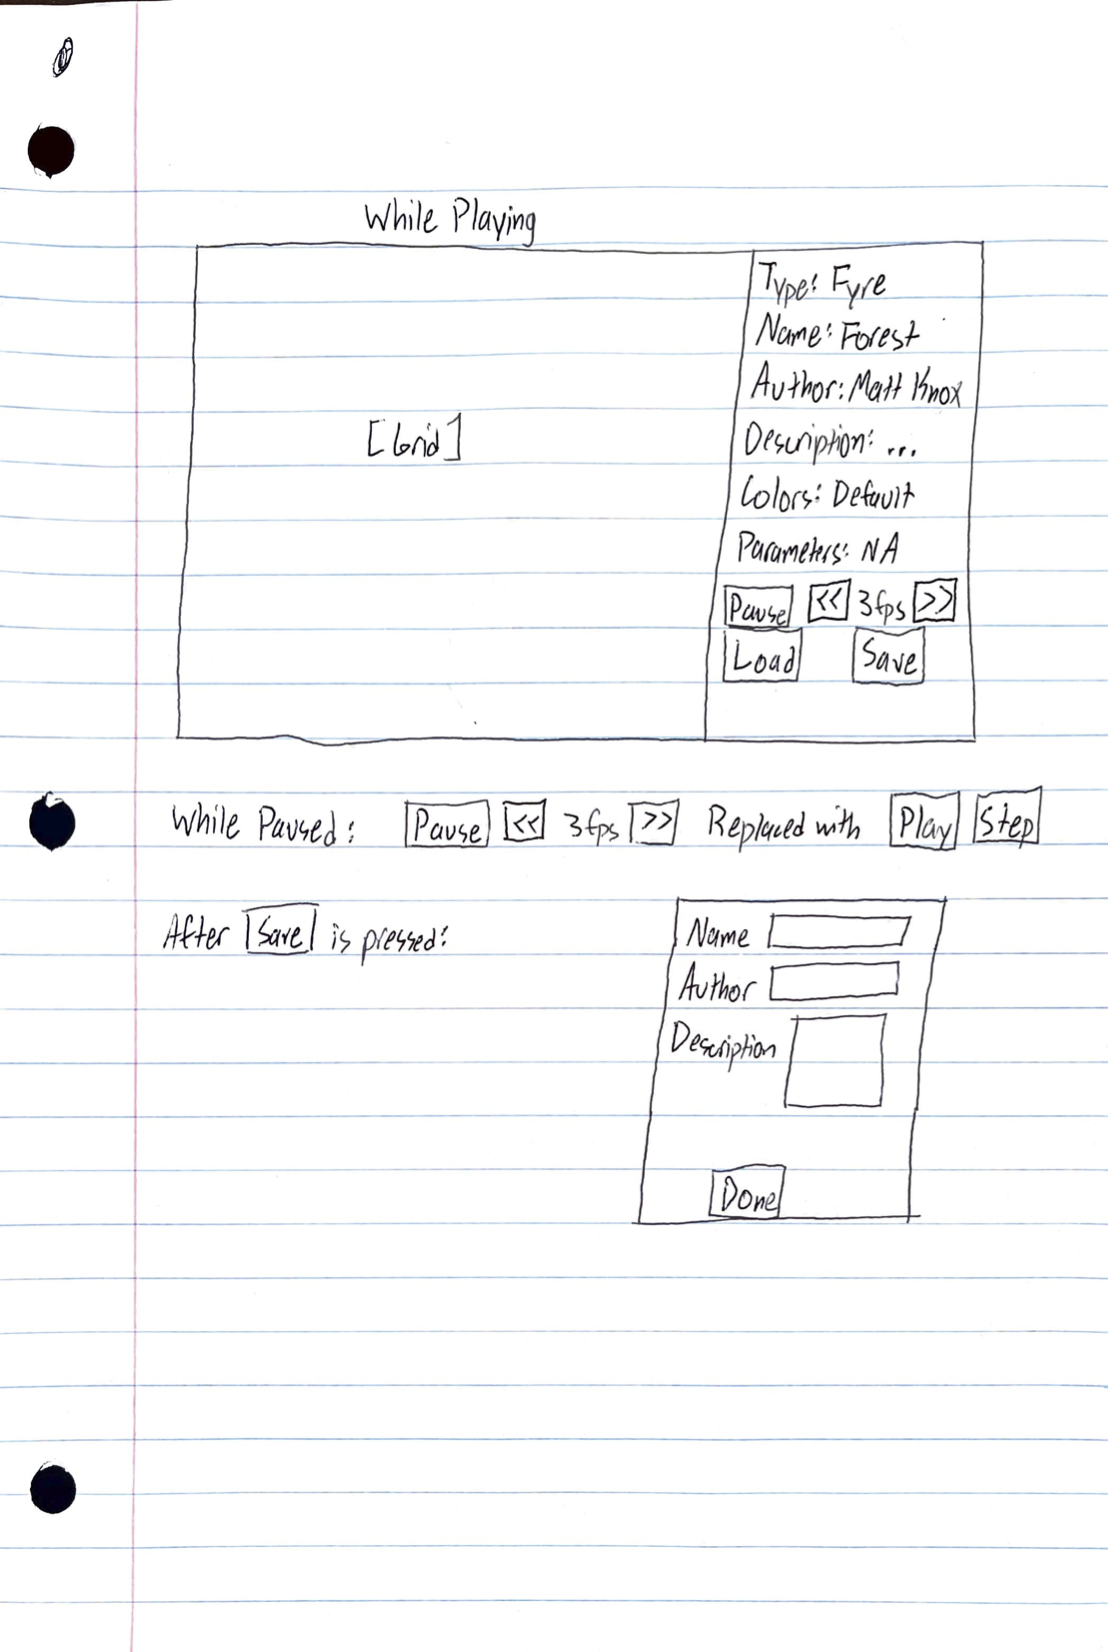 While Playing
Type: Fyre
Name: Forest
Author: Matt Knox
[Grid]
Description: ...
Colors: Default
Parameters: NA
Pause << 3fps >>
Load Save
While Paused: Pause << 3fps >> Replaced with Play Step
After Save is pressed:
Name
Author
Description
Done